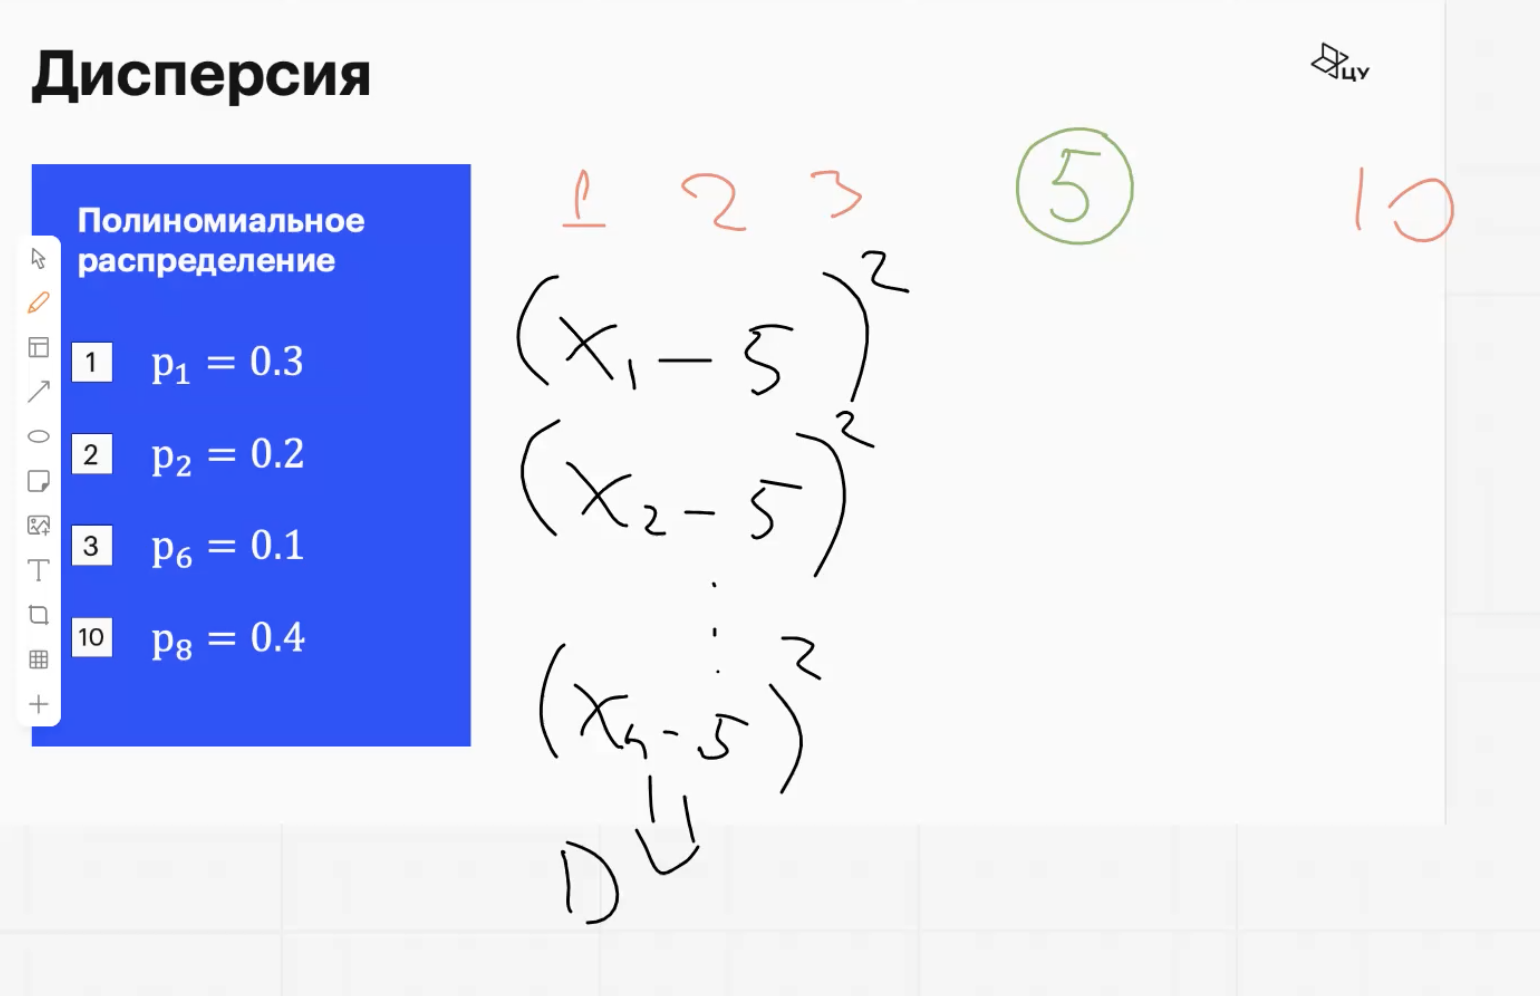 Дисперсия
ЦУ
Полиномиальное
распределение
1 p₁ = 0.3
2 p₂ = 0.2
3 p₆ = 0.1
10 p₈ = 0.4
1 2 3 5 10
(x₁ - 5)²
(x₂ - 5)²
⋮
(x₄ - 5)²
D